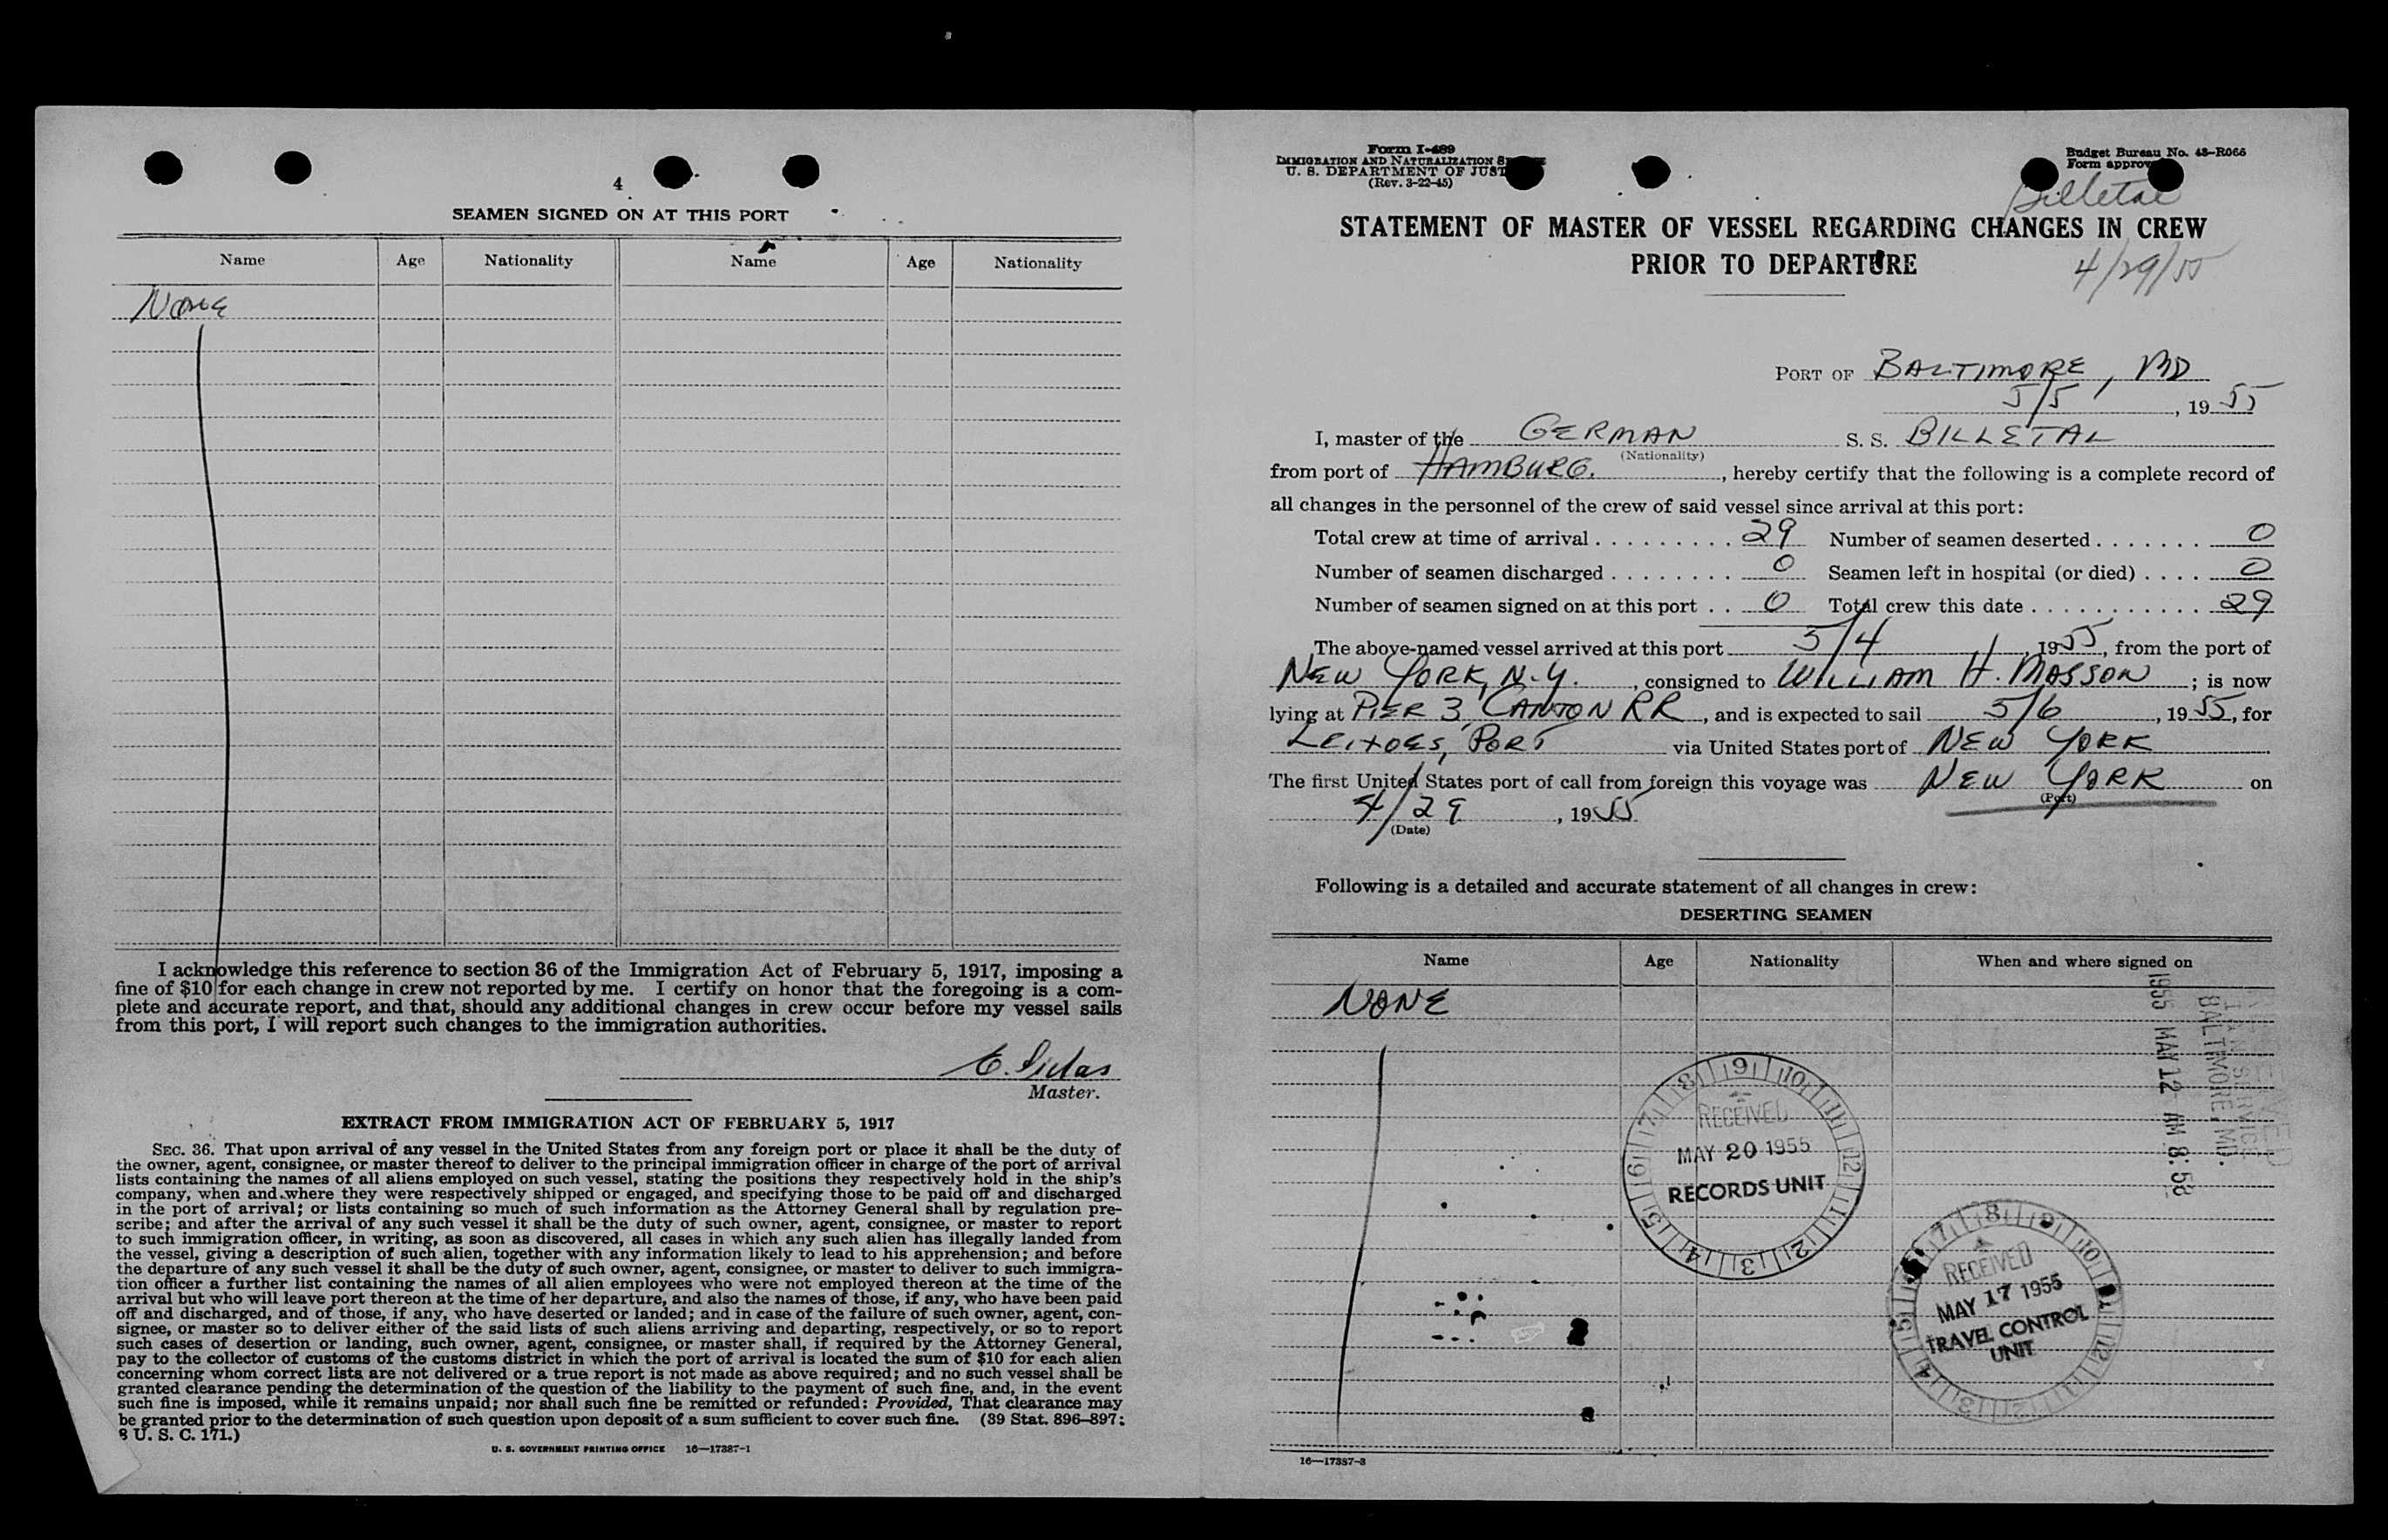 4
SEAMEN SIGNED ON AT THIS PORT
Name Age Nationality Name Age Nationality
None
I acknowledge this reference to section 36 of the Immigration Act of February 5, 1917, imposing a
fine of $10 for each change in crew not reported by me. I certify on honor that the foregoing is a com-
plete and accurate report, and that, should any additional changes in crew occur before my vessel sails
from this port, I will report such changes to the immigration authorities.
E.
Master.
EXTRACT FROM IMMIGRATION ACT OF FEBRUARY 5, 1917
SEC. 36. That upon arrival of any vessel in the United States from any foreign port or place it shall be the duty of
the owner, agent, consignee, or master thereof to deliver to the principal immigration officer in charge of the port of arrival
lists containing the names of all aliens employed on such vessel, stating the positions they respectively hold in the ship's
company, when and where they were respectively shipped or engaged, and specifying those to be paid off and discharged
in the port of arrival; or lists containing so much of such information as the Attorney General shall by regulation pre-
scribe; and after the arrival of any such vessel it shall be the duty of such owner, agent, consignee, or master to report
to such immigration officer, in writing, as soon as discovered, all cases in which any such alien has illegally landed from
the vessel, giving a description of such alien, together with any information likely to lead to his apprehension; and before
the departure of any such vessel it shall be the duty of such owner, agent, consignee, or master to deliver to such immigra-
tion officer a further list containing the names of all alien employees who were not employed thereon at the time of the
arrival but who will leave port thereon at the time of her departure, and also the names of those, if any, who have been paid
off and discharged, and of those, if any, who have deserted or landed; and in case of the failure of such owner, agent, con-
signee, or master so to deliver either of the said lists of such aliens arriving and departing, respectively, or so to report
such cases of desertion or landing, such owner, agent, consignee, or master shall, if required by the Attorney General,
pay to the collector of customs of the customs district in which the port of arrival is located the sum of $10 for each alien
concerning whom correct lists are not delivered or a true report is not made as above required; and no such vessel shall be
granted clearance pending the determination of the question of the liability to the payment of such fine, and, in the event
such fine is imposed, while it remains unpaid; nor shall such fine be remitted or refunded: Provided, That clearance may
be granted prior to the determination of such question upon deposit of a sum sufficient to cover such fine. (39 Stat. 896–897;
8 U. S. C. 171.)
U. S. GOVERNMENT PRINTING OFFICE 16—17387-1
Form I-489
IMMIGRATION AND NATURALIZATION
U. S. DEPARTMENT OF
(Rev. 3-22-45)
Budget Bureau No. 43-R066
Form
Billetal
STATEMENT OF MASTER OF VESSEL REGARDING CHANGES IN CREW
PRIOR TO DEPARTURE
4/29/55
PORT OF BALTIMORE, MD
5/5, 1955
I, master of the GERMAN S. S. BILLETAL
(Nationality)
from port of HAMBURG., hereby certify that the following is a complete record of
all changes in the personnel of the crew of said vessel since arrival at this port:
Total crew at time of arrival 29 Number of seamen deserted 0
Number of seamen discharged 0 Seamen left in hospital (or died) 0
Number of seamen signed on at this port 0 Total crew this date 29
The above-named vessel arrived at this port 5/4, 1955, from the port of
NEW YORK, N.Y., consigned to WILLIAM H. MASSON; is now
lying at PIER 3, CANTON RR, and is expected to sail 5/6, 1955, for
LEIXOES, PORT via United States port of NEW YORK
The first United States port of call from foreign this voyage was NEW YORK on
(Port)
4/29, 1955
(Date)
Following is a detailed and accurate statement of all changes in crew:
DESERTING SEAMEN
Name Age Nationality When and where signed on
NONE
1955 MAY 12 AM 8:58
BALTIMORE, MD.
9 10 11 12 1 2 3 4 5 6 7 8
RECEIVED
MAY 20 1955
RECORDS UNIT
RECEIVED
MAY 17 1955
TRAVEL CONTROL
UNIT
16—17387-3